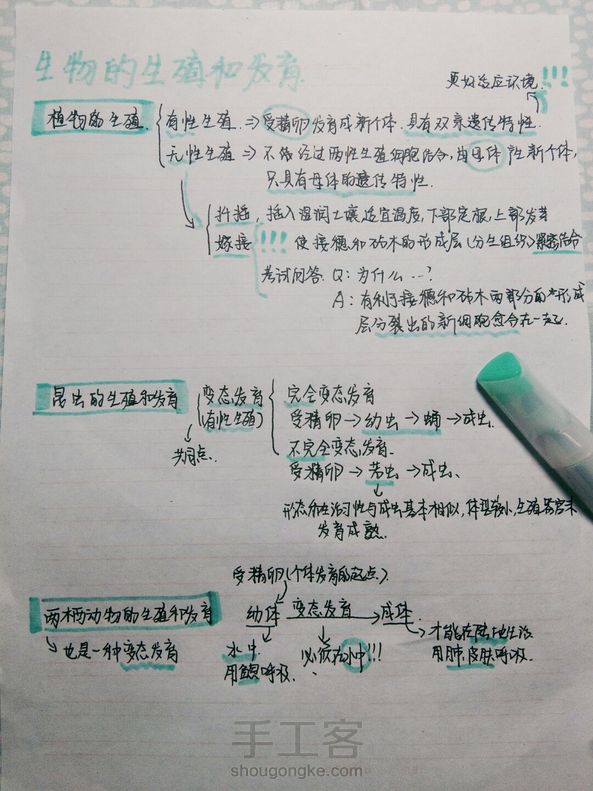 生物的生殖和发育
更好适应环境!!!
植物的生殖
有性生殖 ⇒ 受精卵发育成新个体,具有双亲遗传特性.
无性生殖 ⇒ 不依经过两性生殖细胞结合,由母体 性新个体,
只具有母体的遗传特性.
扦插,插入湿润土壤适宜温度,下部定根,上部发芽
嫁接 !!! 使接穗和砧木的形成层(分生组织)紧密结合
考试问答. Q: 为什么…?
A: 有利于接穗和砧木两部分的形成
层分裂出的新细胞愈合在一起.
昆虫的生殖和发育
变态发育
(有性生殖)
共同点.
完全变态发育
受精卵→幼虫→蛹→成虫.
不完全变态发育.
受精卵→若虫→成虫.
形态和生活习性与成虫基本相似,体型较小,生殖器官未
发育成熟.
受精卵(个体发育的起点).
两栖动物的生殖和发育
幼体 变态发育 → 成体.
也是一种变态发育
水中.
用鳃呼吸.
必须在水中!!!
才能在陆地生活
用肺,皮肤呼吸.
手工客
shougongke.com